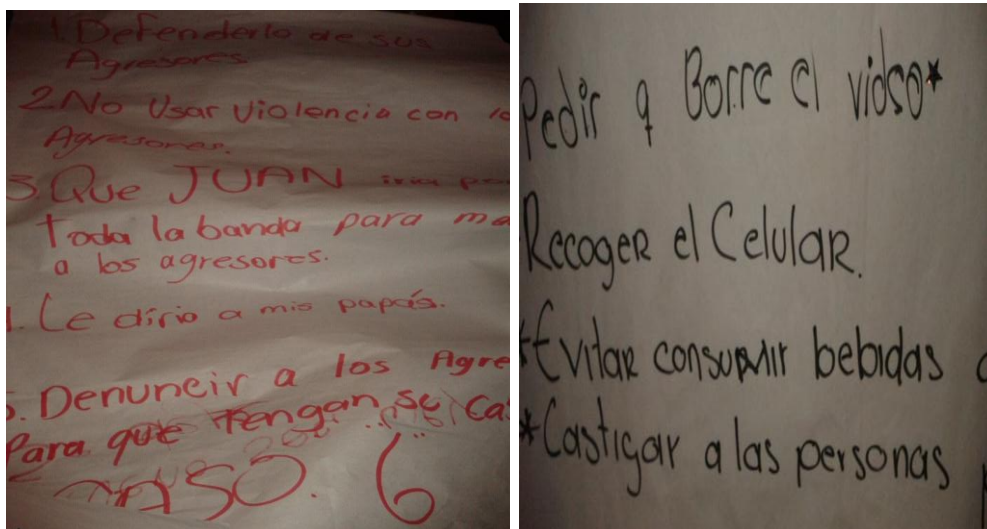 1. Defenderlo de sus
Agresores
2 No Usar Violencia con lo
Agresores.
3. Que JUAN iria po
Toda la banda para ma
a los agresores.
. Le dirio a mis papás.
. Denuncir a los Agre
Para que Tengan su Ca
CASO. 6
Pedir q Borre el video*
Recoger el Celular.
*Evitar consumir bebidas a
*Castigar a las personas